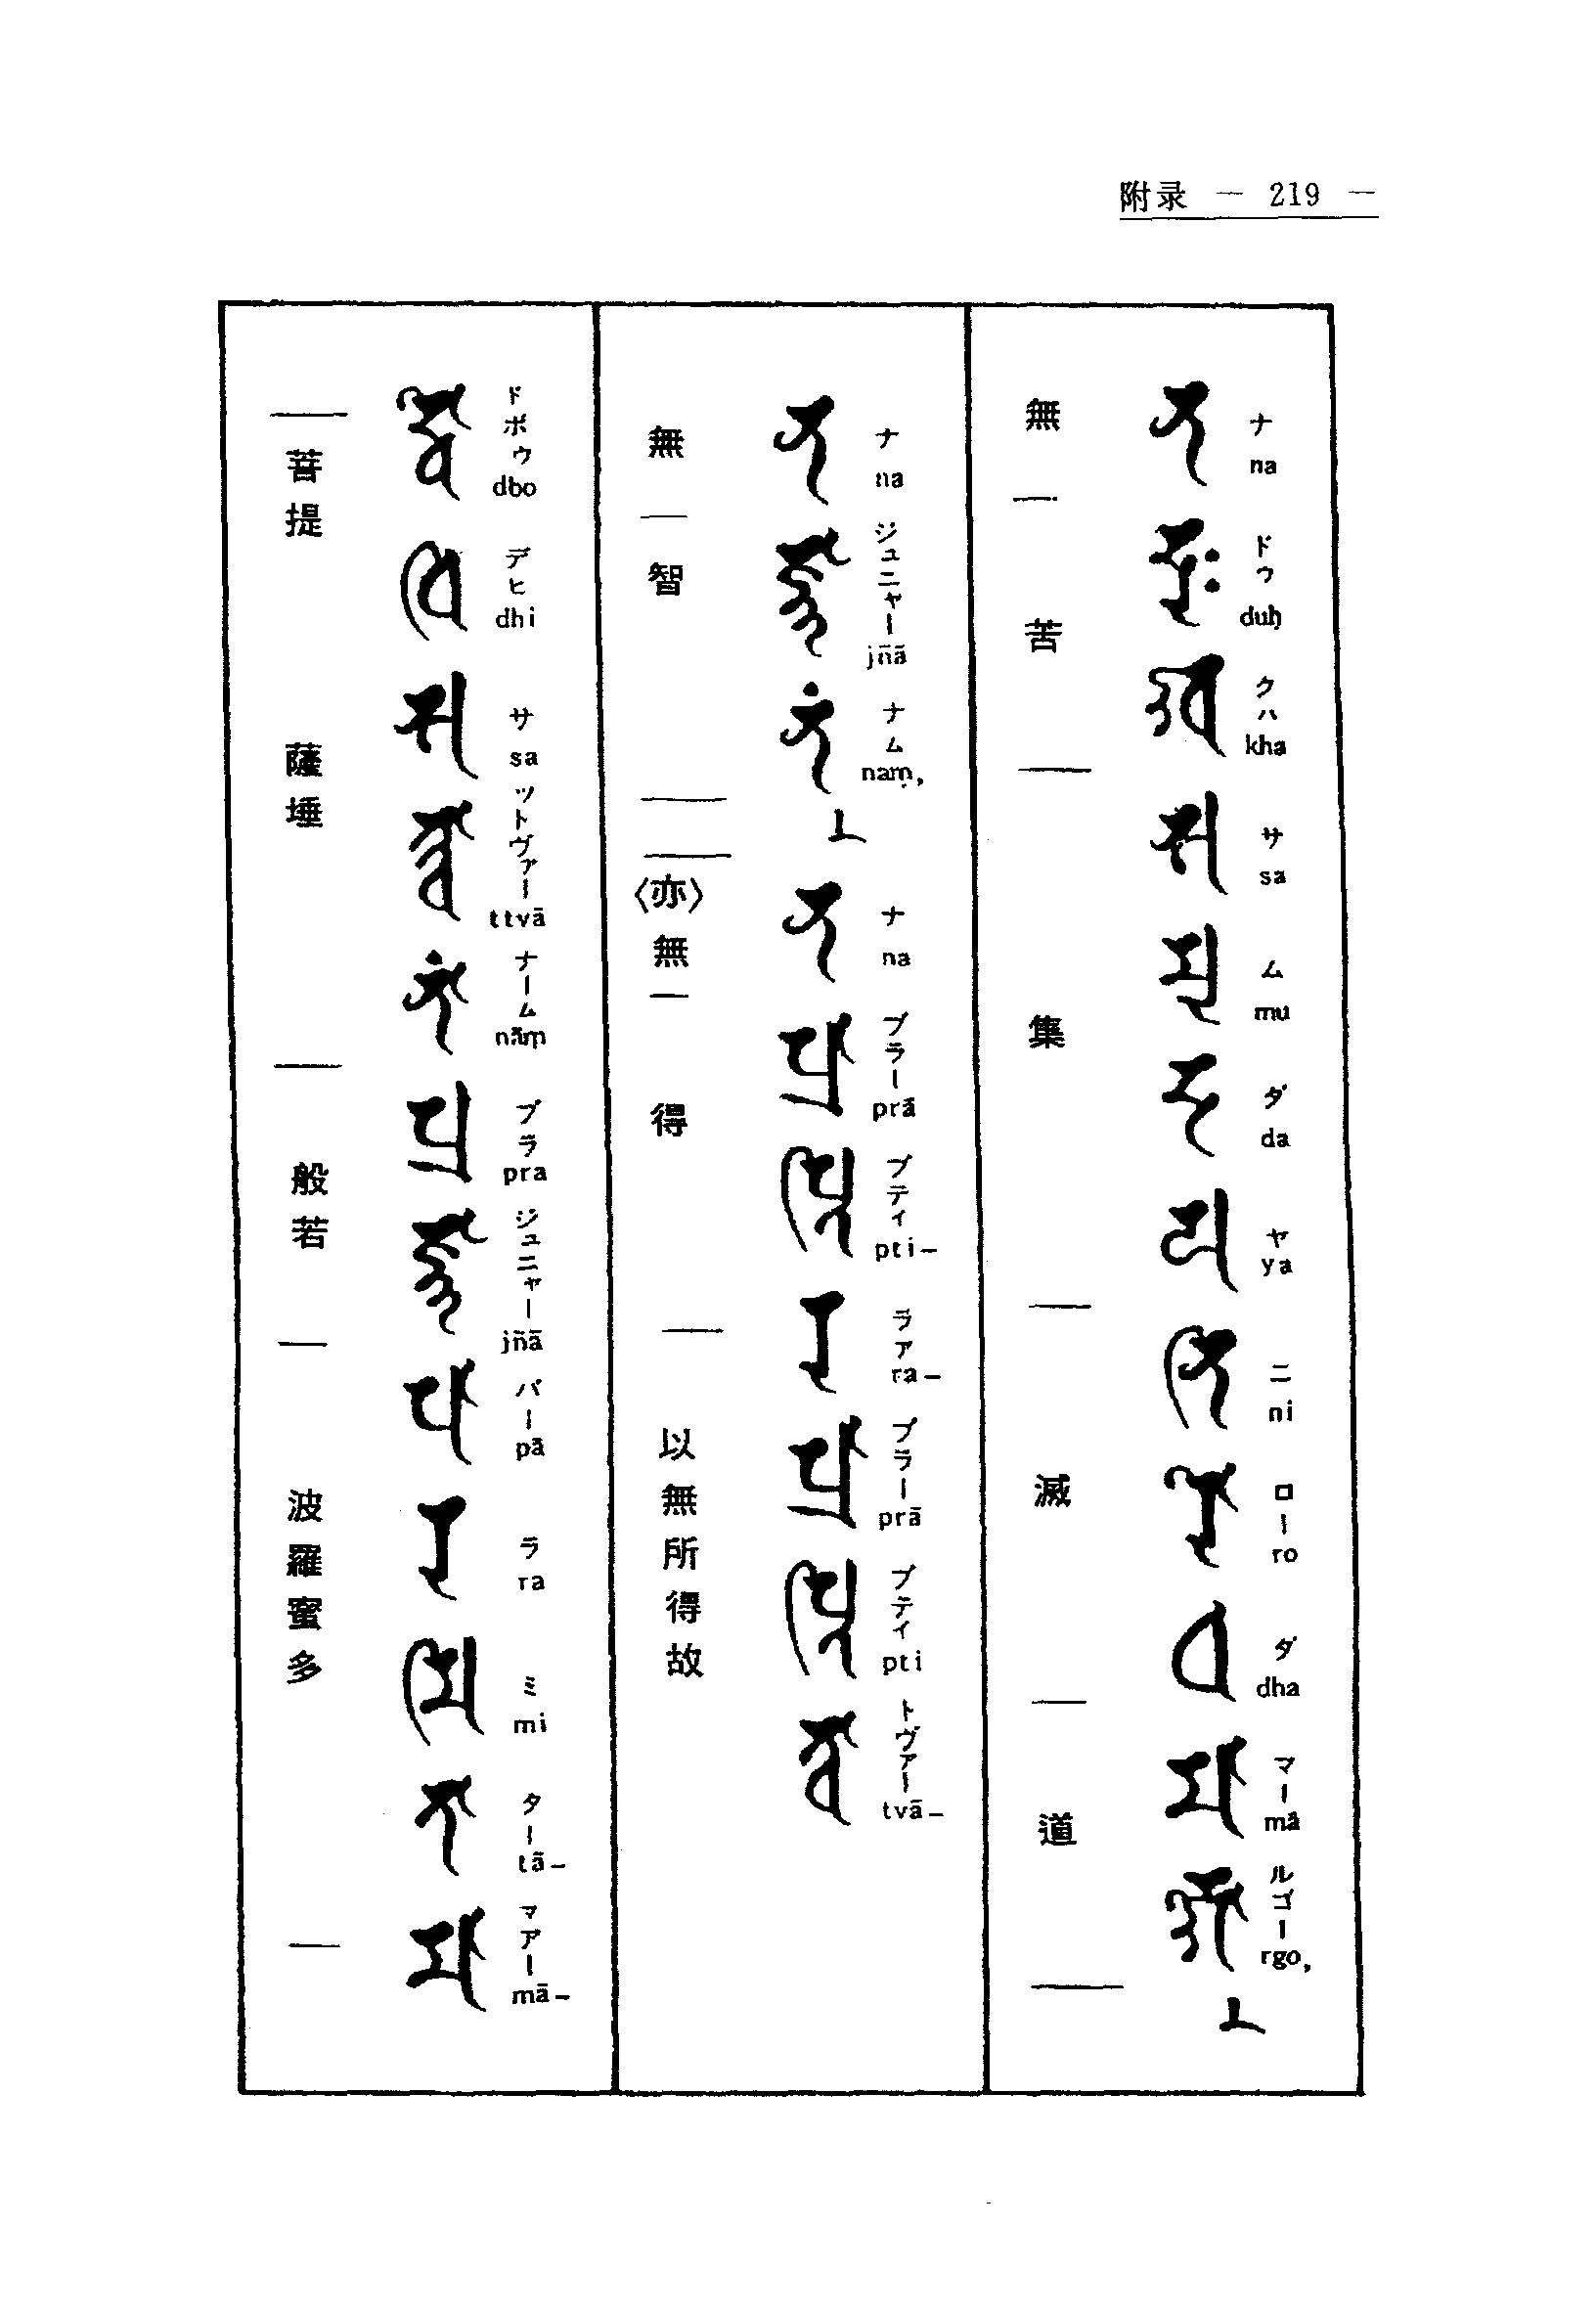 附录 — 219 —
𑖡 ナ na
𑖟𑖲𑖾 ドゥ duḥ
𑖏 クハ kha
𑖭 サ sa
𑖦𑖲 ム mu
𑖟 ダ da
𑖧 ヤ ya
𑖡𑖰 ニ ni
𑖨𑖺 ロー ro
𑖠 ダ dha
𑖦𑖯 マー mā
𑖨𑖿𑖐𑖺 ルゴー rgo,
無 — 苦 — 集 — 滅 — 道 —
𑖡 ナ na
𑖕𑖿𑖗𑖯 ジュニャー jñā
𑖡𑖽 ナム naṃ,
𑖡 ナ na
𑖢𑖿𑖨𑖯 プラー prā
𑖢𑖿𑖝𑖰 プティ pti–
𑖨 ラア ra–
𑖢𑖿𑖨𑖯 プラー prā
𑖢𑖿𑖝𑖰 プティ pti
𑖝𑖿𑖪𑖯 トヴァー tvā–
無 — 智 — — 〈亦〉無 — 得 — 以無所得故
𑖟𑖿𑖤𑖺 ドボゥ dbo
𑖠𑖰 デヒ dhi
𑖭 サ sa
𑖝𑖿𑖝𑖿𑖪𑖯 ットヴァー ttvā
𑖡𑖯𑖽 ナーム nāṃ
𑖢𑖿𑖨 プラ pra
𑖕𑖿𑖗𑖯 ジュニャー jñā
𑖢𑖯 パー pā
𑖨 ラ ra
𑖦𑖰 ミ mi
𑖝𑖯 ター tā–
𑖦𑖯 マアー mā–
— 菩提 薩埵 — 般若 — 波羅蜜多 —